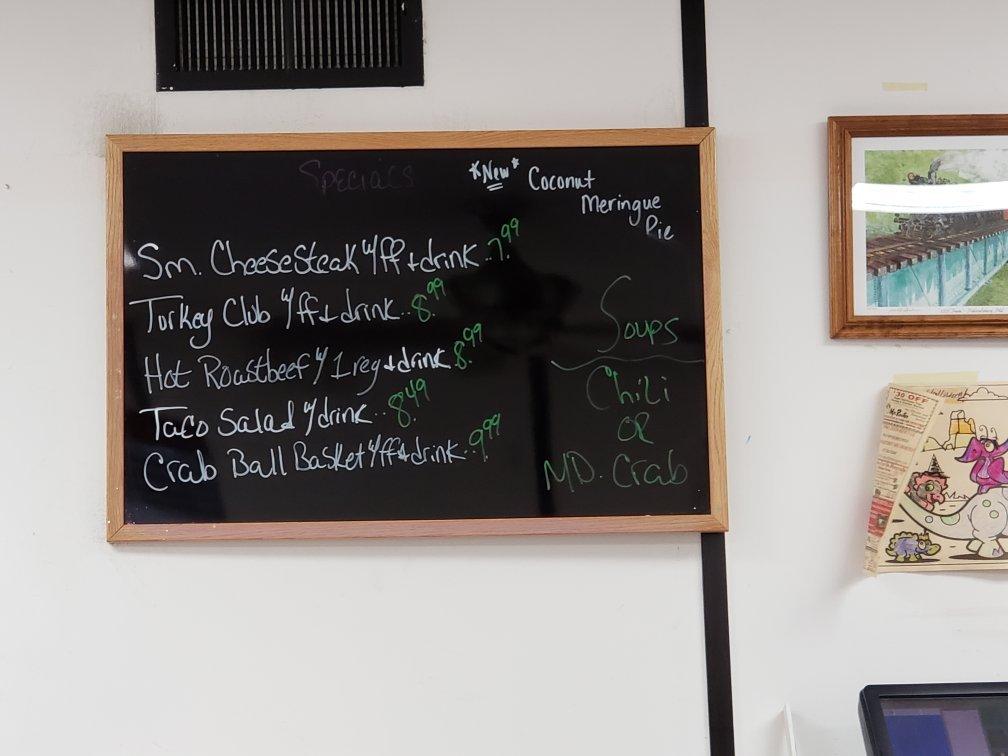 Specials
*New* Coconut
Meringue
Pie
Sm. CheeseSteak w/ff + drink..7.99
Turkey Club w/ff + drink..8.99
Hot Roastbeef w/ 1 reg + drink 8.99
Taco Salad w/drink..8.49
Crab Ball Basket w/ff + drink..9.99
Soups
Chili
OR
MD. Crab
$30 OFF